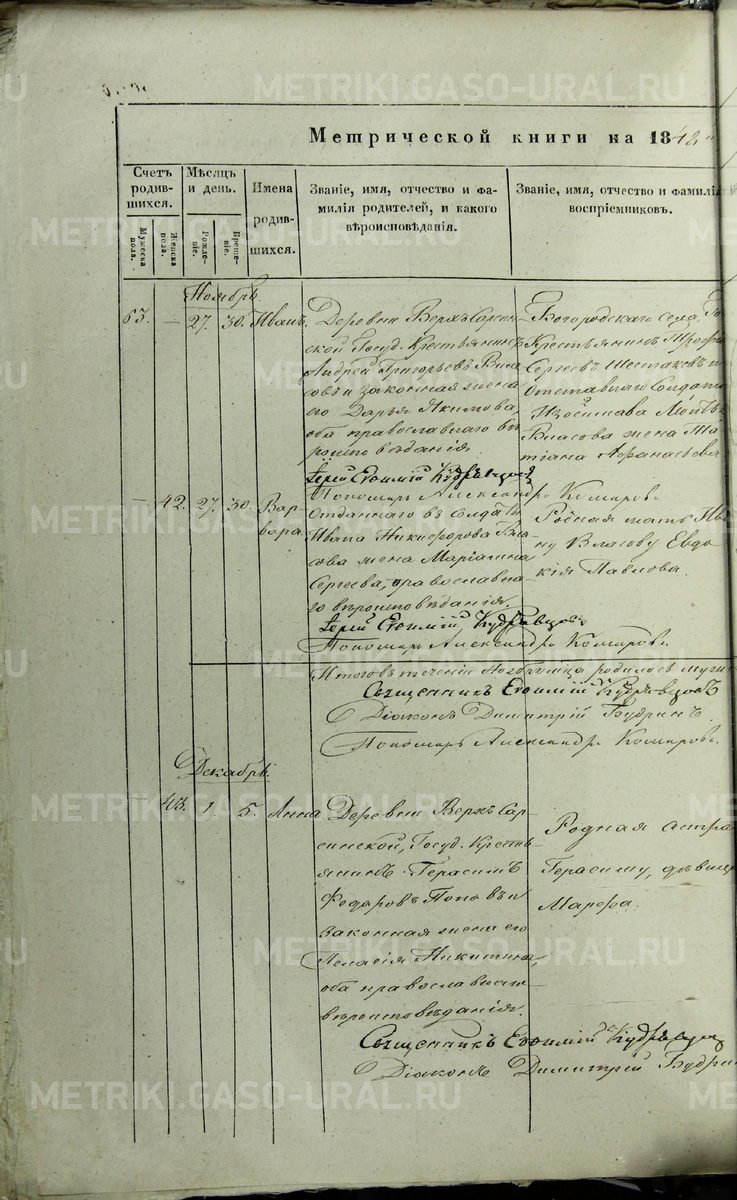 Метрической книги на 1848
Счетъ родив-шихся.
Мужеска пола.
Женска пола.
Мѣсяцъ и день.
Рожде-ніе.
Креще-ніе.
Имена родив-шихся.
Званіе, имя, отчество и фа-
милія родителей, и какого
вѣроисповѣданія.
Званіе, имя, отчество и фамилія
воспріемниковъ.
Ноябрь.
63. — 27. 30. Иванъ.
Деревни Верхъ Сарсин-
ской Госуд. Крестьянинъ
Андрей Григорьевъ Вла
совъ и законная жена
его Дарья Якимова,
оба православнаго вѣ
роисповѣданія.
Богородскаго села, Го
Крестьянинъ Трофи
Сергѣевъ Шестаковъ и
Отставнаго Солдата
Власова жена Та
тіана Афанасьева
Іерей Евфимій Кудрявцевъ
Пономарь Александръ Комаровъ.
— 42. 27. 30. Вар-
вара.
Отданнаго въ солдаты
Ивана Никифорова Вла
сова жена Маріамна
Сергѣева, православна
го вѣроисповѣданія.
Родная мать Ива
ну Власову Евдо
кія Павлова.
Іерей Евфимій Кудрявцевъ
Пономарь Александръ Комаровъ.
Итого въ теченіи Ноября м-ца родилось мужес
Священникъ Евфимій Кудрявцевъ
Діаконъ Димитрій Будринъ.
Пономарь Александръ Комаровъ.
Декабрь.
— 43. 1. 5. Анна.
Деревни Верхъ Сар-
синской, Госуд. Кресть-
янинъ Герасимъ
Федоровъ Поповъ и
законная жена его
Пелагія Никитина,
оба православнаго
вѣроисповѣданія.
Родная сестра
Герасиму, дѣвица
Марфа.
Священникъ Евфимій Кудрявцев
Діаконъ Димитрій Будрин
METRIKI.GASO-URAL.RU